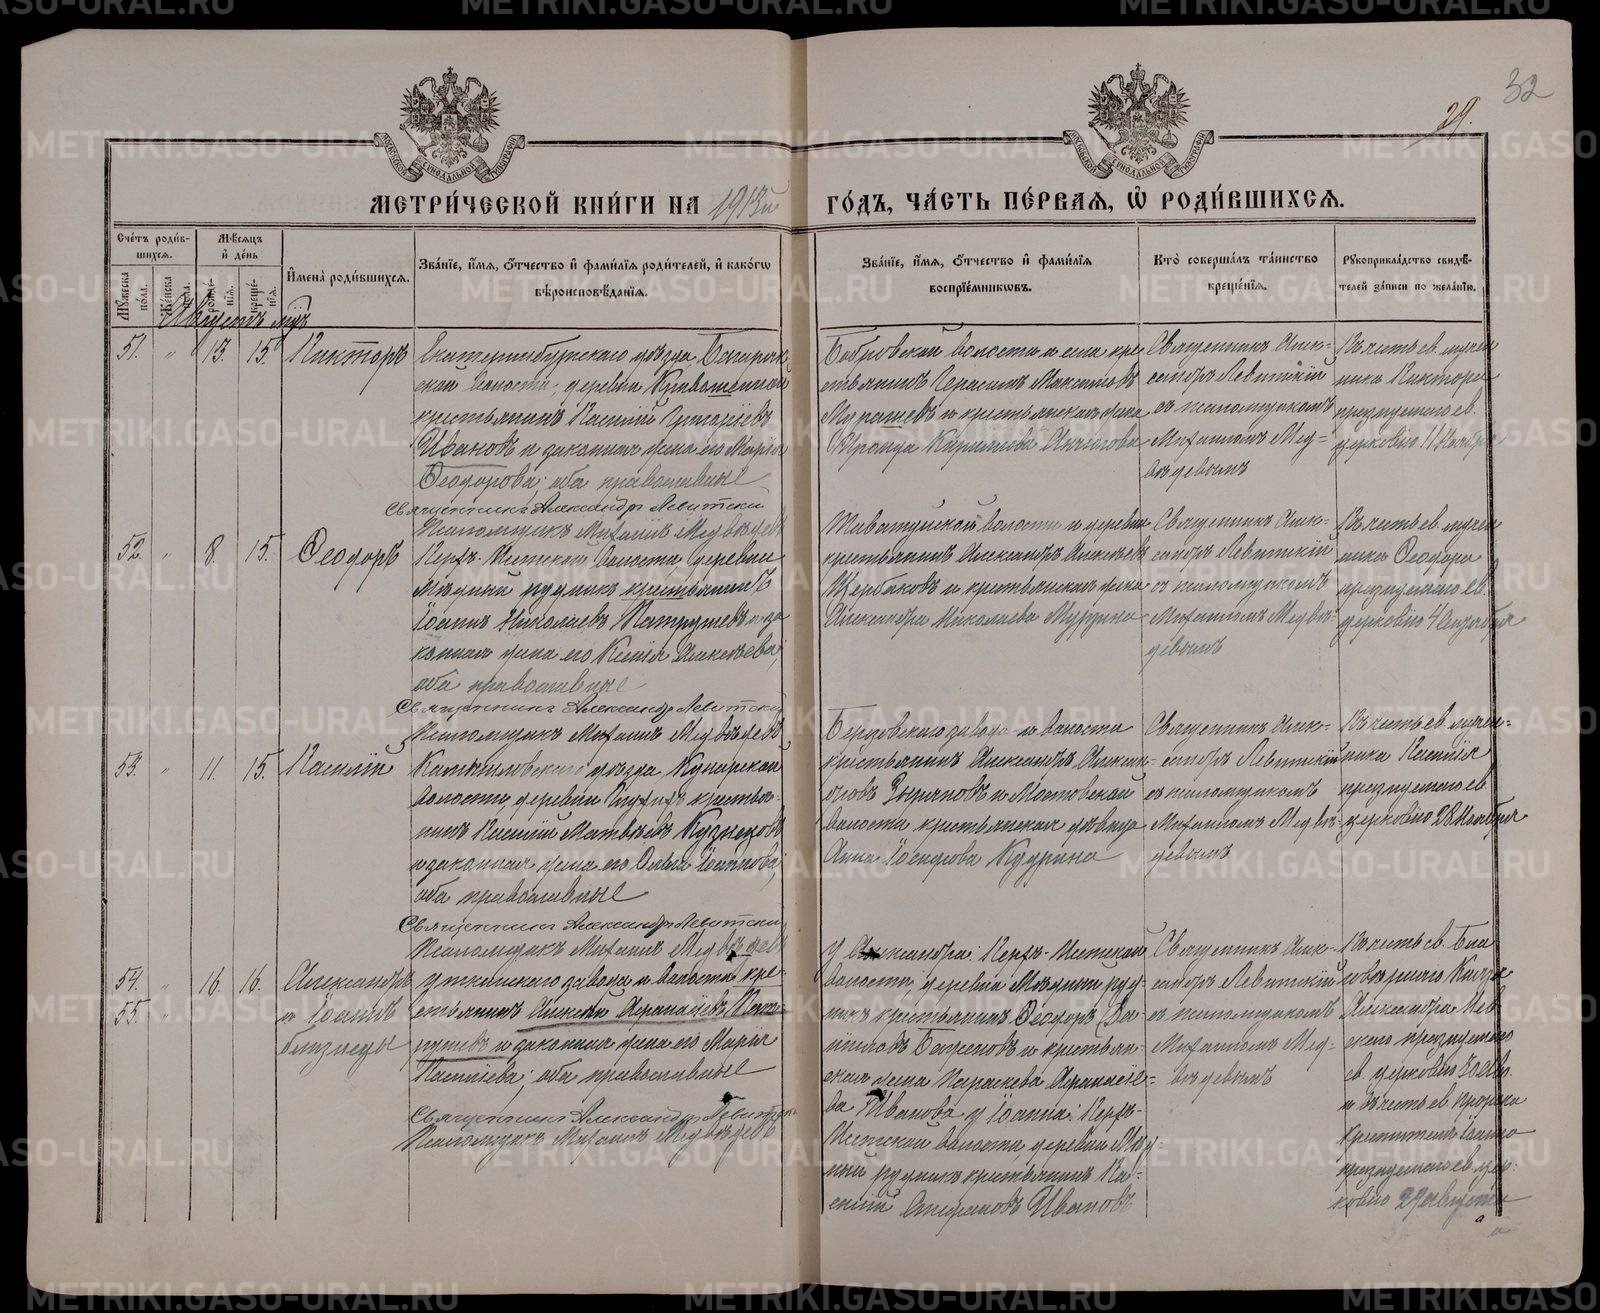 32
29.
МЕТРИ́ЧЕСКОЙ КНИ́ГИ НА 1913й ГО́ДЪ, ЧА́СТЬ ПЕ́РВАЯ, Ѡ РОДИ́ВШИХСЯ.
Сче́тъ роди́в-
шихся.
Мѣ́сяцъ
и҆ де́нь
Му́жеска по́ла.
Же́нска по́ла.
рожде́-
нїя.
креще́-
нїя.
И҆мена̀ роди́вшихся.
Зва́нїе, и҆́мя, ѻ҆́тчество и҆ фами́лїя роди́телей, и҆ како́гѡ
вѣроисповѣ́данїя.
Зва́нїе, и҆́мя, ѻ҆́тчество и҆ фами́лїя
воспрїе́мникѡвъ.
Кто̀ соверша́лъ та́инство
креще́нїя.
Рꙋкоприкла́дство свидѣ́-
телей за́писи по жела́нїю.
Августъ
51. " 13. 15. Викторъ
Екатеринбургскаго уѣзда,
волости, деревни
крестьянинъ Василій
Ивановъ и законная жена его Марія
Ѳеодорова; оба православные
Священникъ Александръ Левитскій
Псаломщикъ Михаилъ Медвѣдевъ
Бобровской волости и села кре-
стьянинъ Герасимъ Максимовъ
и крестьянская жена
Священникъ Алек-
сандръ Левитскій
съ псаломщикомъ
Михаиломъ Мед-
вѣдевымъ
Въ честь св. мучен
ника Виктора
празднуемаго св.
церковію 11 Ноября
52. " 8. 15. Ѳеодоръ
Верхъ-Исетской волости, деревни
Мѣдный рудникъ крестьянинъ
Іоаннъ Николаевъ Патрушевъ и за
конная жена его Ксенія Алексѣева;
оба православные
Священникъ Александръ Левитскій
Псаломщикъ Михаилъ Медвѣдевъ
Таватуйской волости и деревни
крестьянинъ Александръ Алексѣевъ
Щербаковъ и крестьянская жена
Александра Николаева Мурзина
Священникъ Алек-
сандръ Левитскій
съ псаломщикомъ
Михаиломъ Медвѣ-
девымъ
Въ честь св. мучен
ника Ѳеодора
празднуемаго св.
церковію 4
53. " 11. 15. Василій
Камышловскаго уѣзда, Кунарской
волости, деревни крестья-
нинъ Василій Матвѣевъ Кузнецовъ
и законная жена его Ольга
оба православные
Священникъ Александръ Левитскій
Псаломщикъ Михаилъ Медвѣдевъ
Березовскаго завода и волости
крестьянинъ Александръ Алексан-
дровъ Зыряновъ и Мостовской
волости крестьянская дѣвица
Анна Іосифова Кудрина
Священникъ Алек-
сандръ Левитскій
съ псаломщикомъ
Михаиломъ Медвѣ-
девымъ
Въ честь св. мучен-
ника Василія
празднуемаго св.
церковію 28 Ноября
54. " 16. 16. Александръ
55. " и Іоаннъ
близнецы
Уткинскаго завода и волости кре-
стьянинъ Алексѣй Аѳанасіевъ Пат-
рушевъ и законная жена его Марія
Василіева; оба православные
Священникъ Александръ Левитскій
Псаломщикъ Михаилъ Медвѣдевъ
У Александра: Верхъ-Исетской
волости, деревни Мѣдный руд-
никъ крестьянинъ Ѳеодоръ Да-
ніиловъ Багреновъ и крестьян-
ская жена Параскева Аѳанасіе-
ва Иванова у Іоанна: Верхъ-
Исетской волости, деревни Мѣд-
ный рудникъ крестьянинъ Ва-
силій Ивановъ
Священникъ Алек-
сандръ Левитскій
съ псаломщикомъ
Михаиломъ Мед-
вѣдевымъ
Въ честь св. Бла
говѣрнаго Князя
Александра Нев
скаго празднуемаго
св. церковію 30 Авг.
и въ честь св. пророка
Крестителя Іоанна
празднуемаго св. цер-
ковію 29 Августа
METRIKI.GASO-URAL.RU